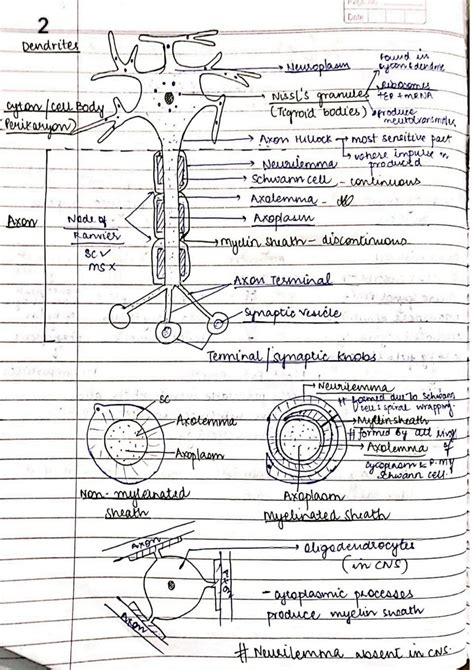 Date
2
Dendrites
Neuroplasm
found in
cyton & dendrite
Nissl's granules
(Tigroid bodies)
ribosomes
+ER + mRNA
produce
cyton/cell Body
(Perikaryon)
Axon Hillock → most sensitive part
where impulse is
produced
Neurilemma
Schwann cell - continuous
Axolemma
Axoplasm
Axon
Node of
Ranvier
SC ✓
MS ×
myelin sheath - discontinuous
Axon Terminal
Synaptic vesicle
Terminal/synaptic knobs
SC
Axolemma
Axoplasm
Non-myleinated
sheath
Neurilemma
# formed due to Schwann
cell spiral wrapping
Myelin sheath
# formed by
Axolemma
cytoplasm &
Schwann cell
Axoplasm
Myelinated sheath
Axon
Axon
Axon
oligodendrocytes
(in CNS)
- cytoplasmic processes
produce myelin sheath
# Neurilemma absent in CNS.